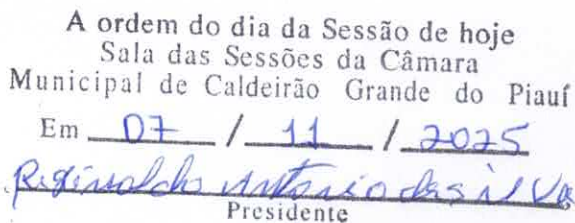 A ordem do dia da Sessão de hoje
Sala das Sessões da Câmara
Municipal de Caldeirão Grande do Piauí
Em 07 / 11 / 2025
Reginaldo Antonio da silva
Presidente